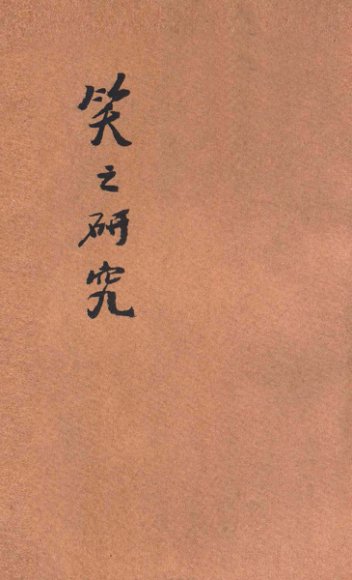 笑之研究